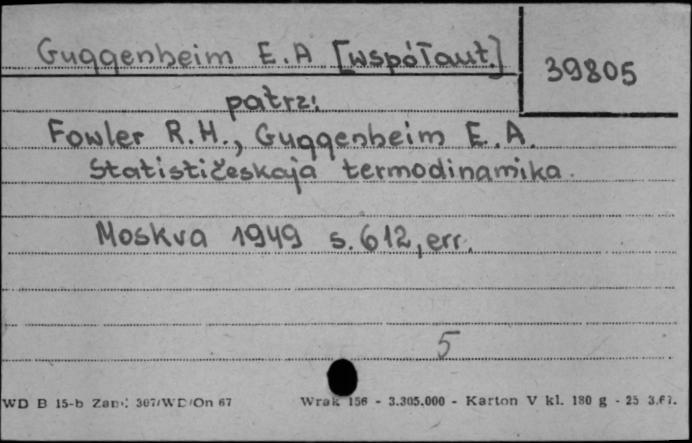 Guggenheim E.A [współaut.]
39805
patrz:
Fowler R.H., Guggenheim E.A.
Statističeskaja termodinamika.
Moskva 1949 s. 612, err.
5
WD B 15-b Zam. 307/WD/On 67 Wrak 156 - 3.305.000 - Karton V kl. 180 g - 25 3.67.